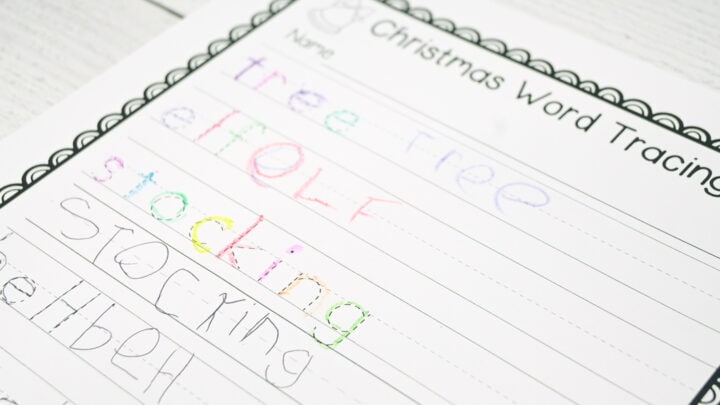 Christmas Word Tracing
Name
tree Free
elf eLF
stocking
STOCKing